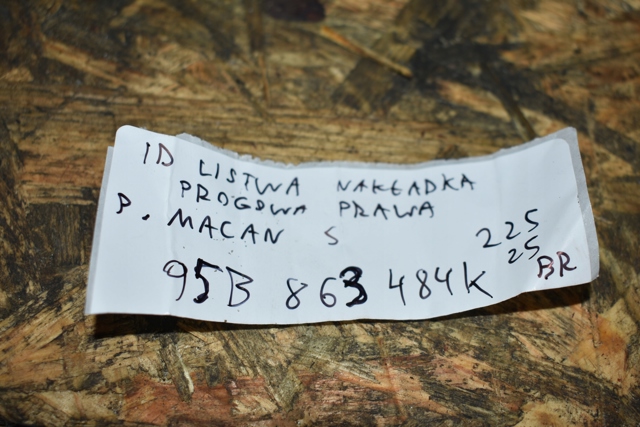 ID LISTWA NAKŁADKA
PROGOWA PRAWA
P. MACAN S
225
25
BR
95B 863 484K